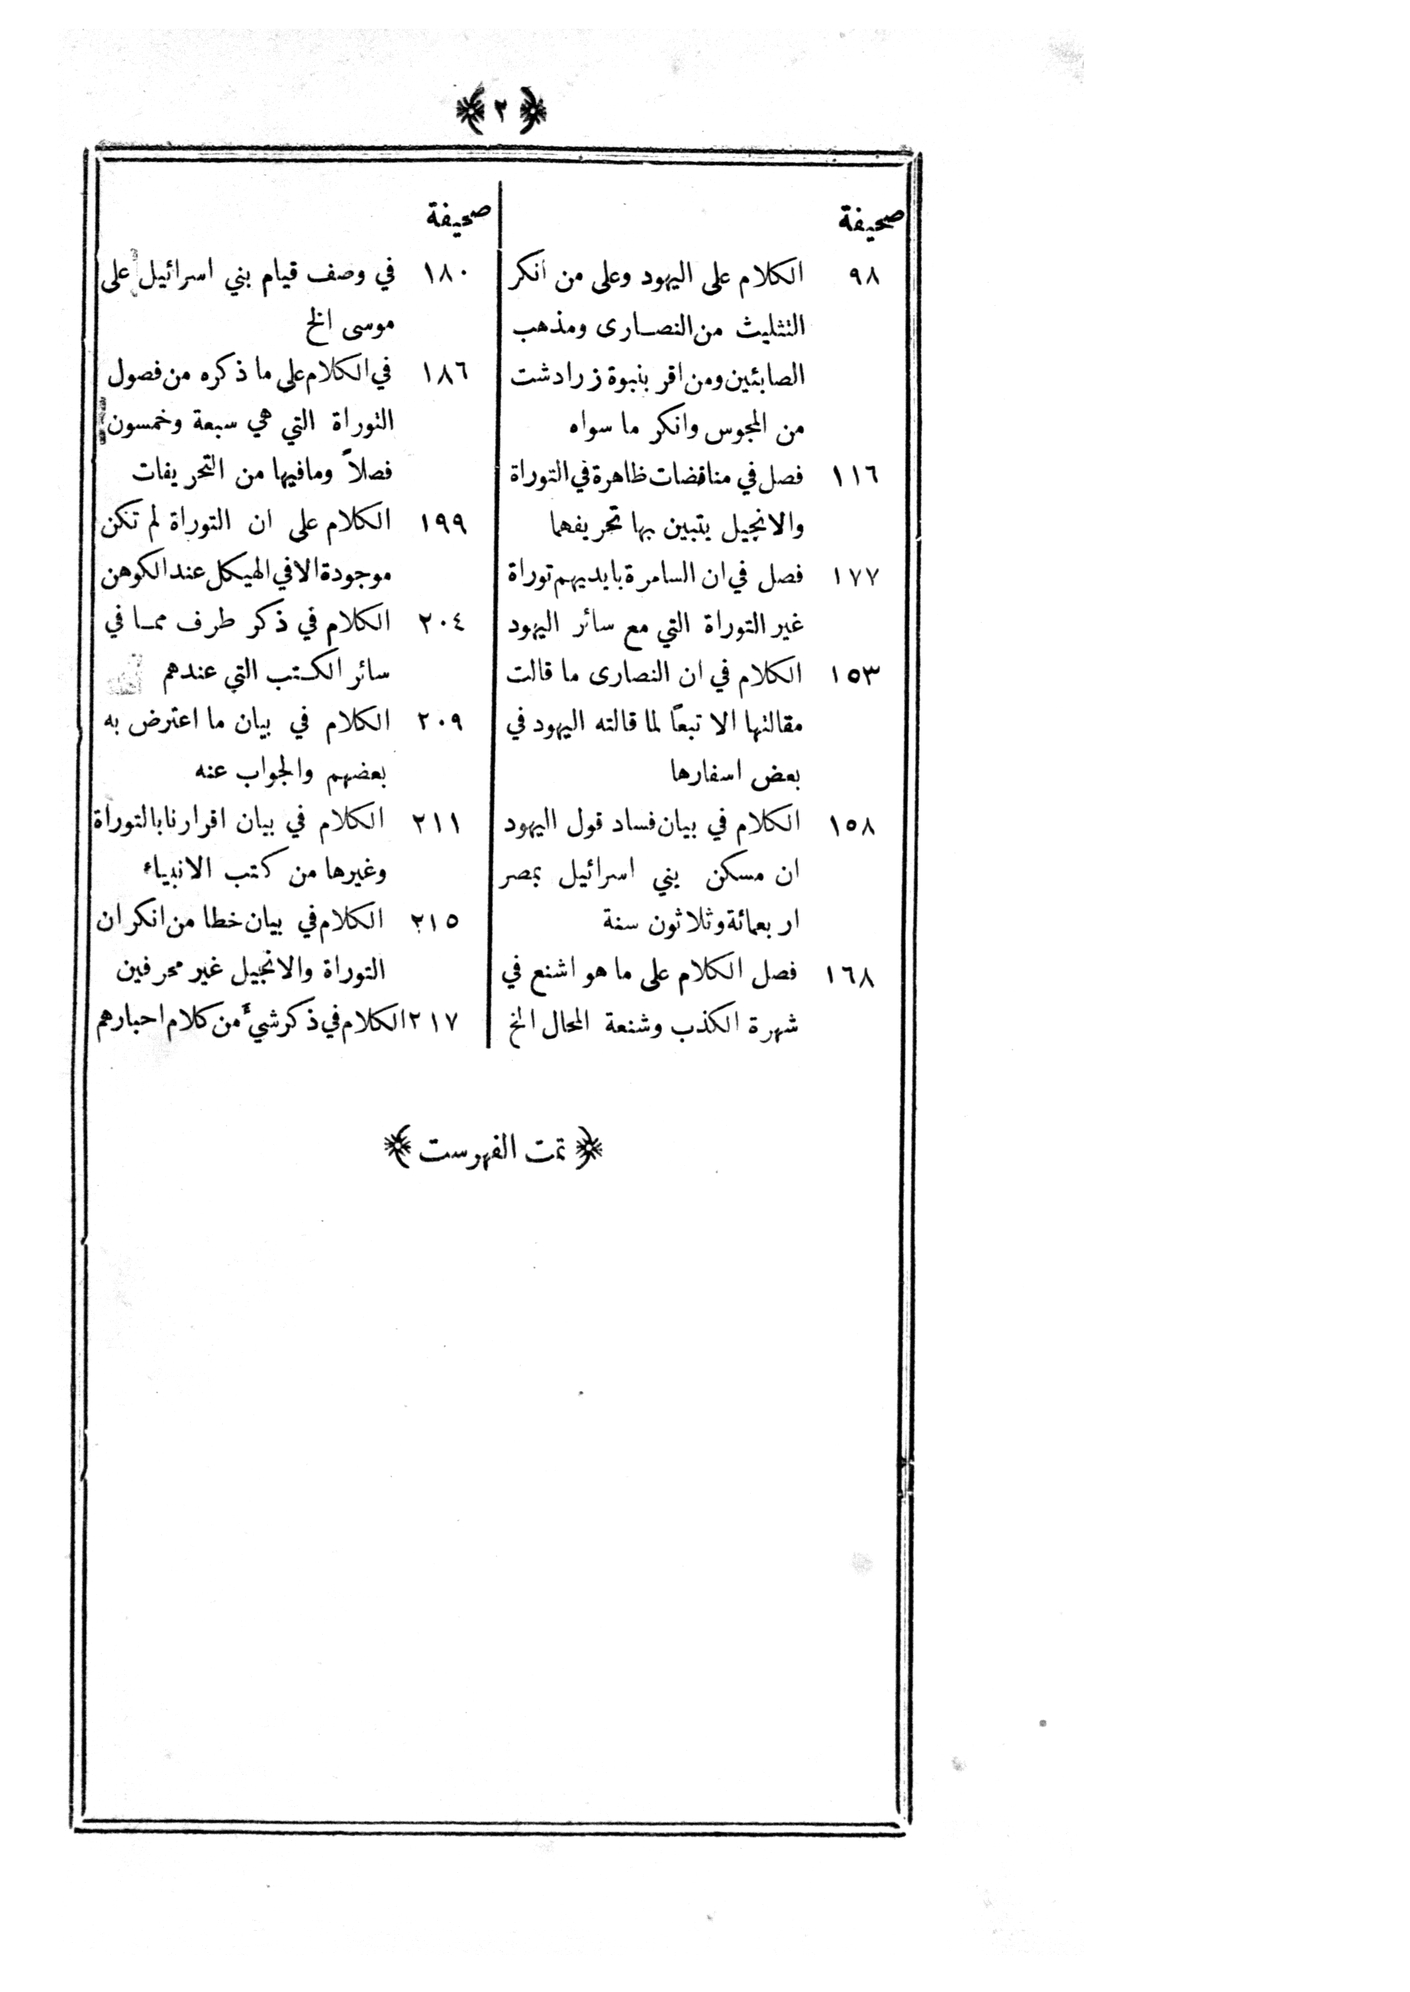 ﴿ ٢ ﴾
صحيفة
٩٨ الكلام على اليهود وعلى من انكر
التثليث من النصارى ومذهب
الصابئين ومن اقر بنبوة زرادشت
من المجوس وانكر ما سواه
١١٦ فصل في مناقضات ظاهرة في التوراة
والانجيل يتبين بها تحريفهما
١٧٧ فصل في ان السامرة بايديهم توراة
غير التوراة التي مع سائر اليهود
١٥٣ الكلام في ان النصارى ما قالت
مقالتها الا تبعاً لما قالته اليهود في
بعض اسفارها
١٥٨ الكلام في بيان فساد قول اليهود
ان مسكن بني اسرائيل بمصر
اربعمائة وثلاثون سنة
١٦٨ فصل الكلام على ما هو اشنع في
شهرة الكذب وشنعة المحال الخ
صحيفة
١٨٠ في وصف قيام بني اسرائيل على
موسى الخ
١٨٦ في الكلام على ما ذكره من فصول
التوراة التي هي سبعة وخمسون
فصلاً ومافيها من التحريفات
١٩٩ الكلام على ان التوراة لم تكن
موجودة الا في الهيكل عند الكوهن
٢٠٤ الكلام في ذكر طرف مما في
سائر الكتب التي عندهم
٢٠٩ الكلام في بيان ما اعترض به
بعضهم والجواب عنه
٢١١ الكلام في بيان اقرارنا بالتوراة
وغيرها من كتب الانبياء
٢١٥ الكلام في بيان خطا من انكر ان
التوراة والانجيل غير محرفين
٢١٧ الكلام في ذكر شيء من كلام احبارهم
﴿ تمت الفهرست ﴾